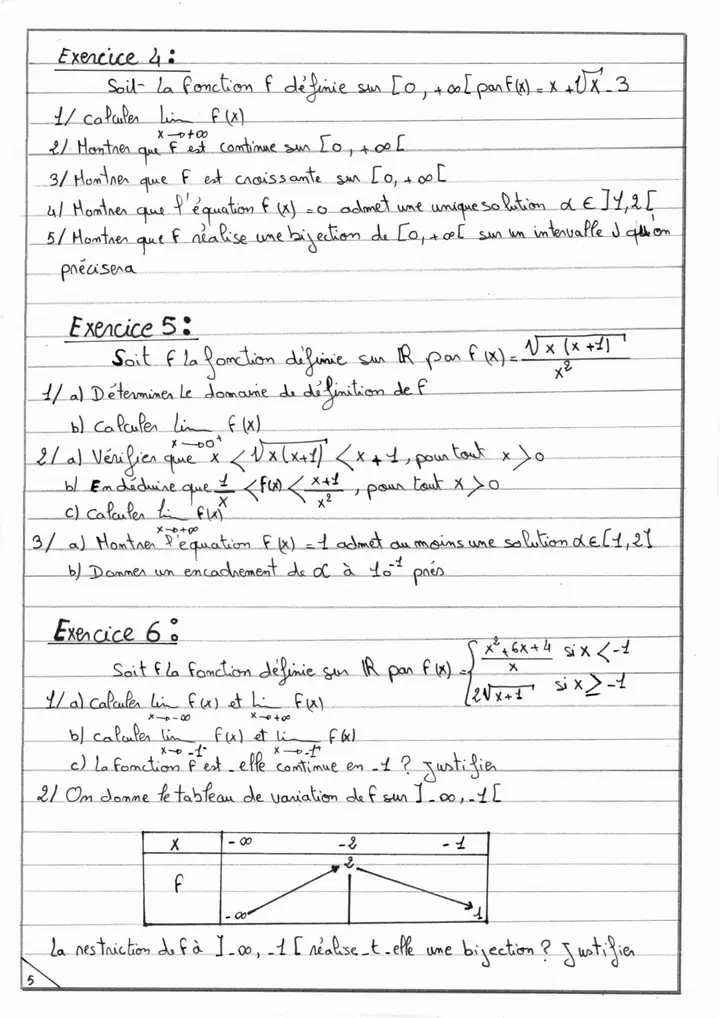 Exercice 4 :
Soit la fonction f définie sur [0, +∞[ par f(x) = x + √x - 3
1/ calculer lim f(x)
x→+∞
2/ Montrer que f est continue sur [0, +∞[
3/ Montrer que f est croissante sur [0, +∞[
4/ Montrer que l'équation f(x) = 0 admet une unique solution α ∈ ]1,2[
5/ Montrer que f réalise une bijection de [0, +∞[ sur un intervalle J qu'on
précisera
Exercice 5 :
Soit f la fonction définie sur ℝ par f(x) = √x(x+1) / x²
1/ a) Déterminer le domaine de définition de f
b) calculer lim f(x)
x→0⁺
2/ a) Vérifier que x < √x(x+1) < x+1, pour tout x > 0
b/ En déduire que 1/x < f(x) < x+1/x², pour tout x > 0
c) calculer lim f(x)
x→+∞
3/ a) Montrer l'equation f(x) = 1 admet au moins une solution α ∈ [1,2]
b) Donner un encadrement de α à 10⁻¹ prés
Exercice 6 :
Soit f la fonction définie sur ℝ par f(x) = { x²+6x+4 / x si x < -1
2√x+1 si x ≥ -1
1/ a) calculer lim f(x) et lim f(x)
x→-∞ x→+∞
b) calculer lim f(x) et lim f(x)
x→-1⁻ x→-1⁺
c) la fonction f est-elle continue en -1 ? justifier
2/ On donne le tableau de variation de f sur ]-∞, -1[
x -∞ -2 -1
f -∞ 2 1
La restriction de f à ]-∞, -1[ réalise-t-elle une bijection ? Justifier
5